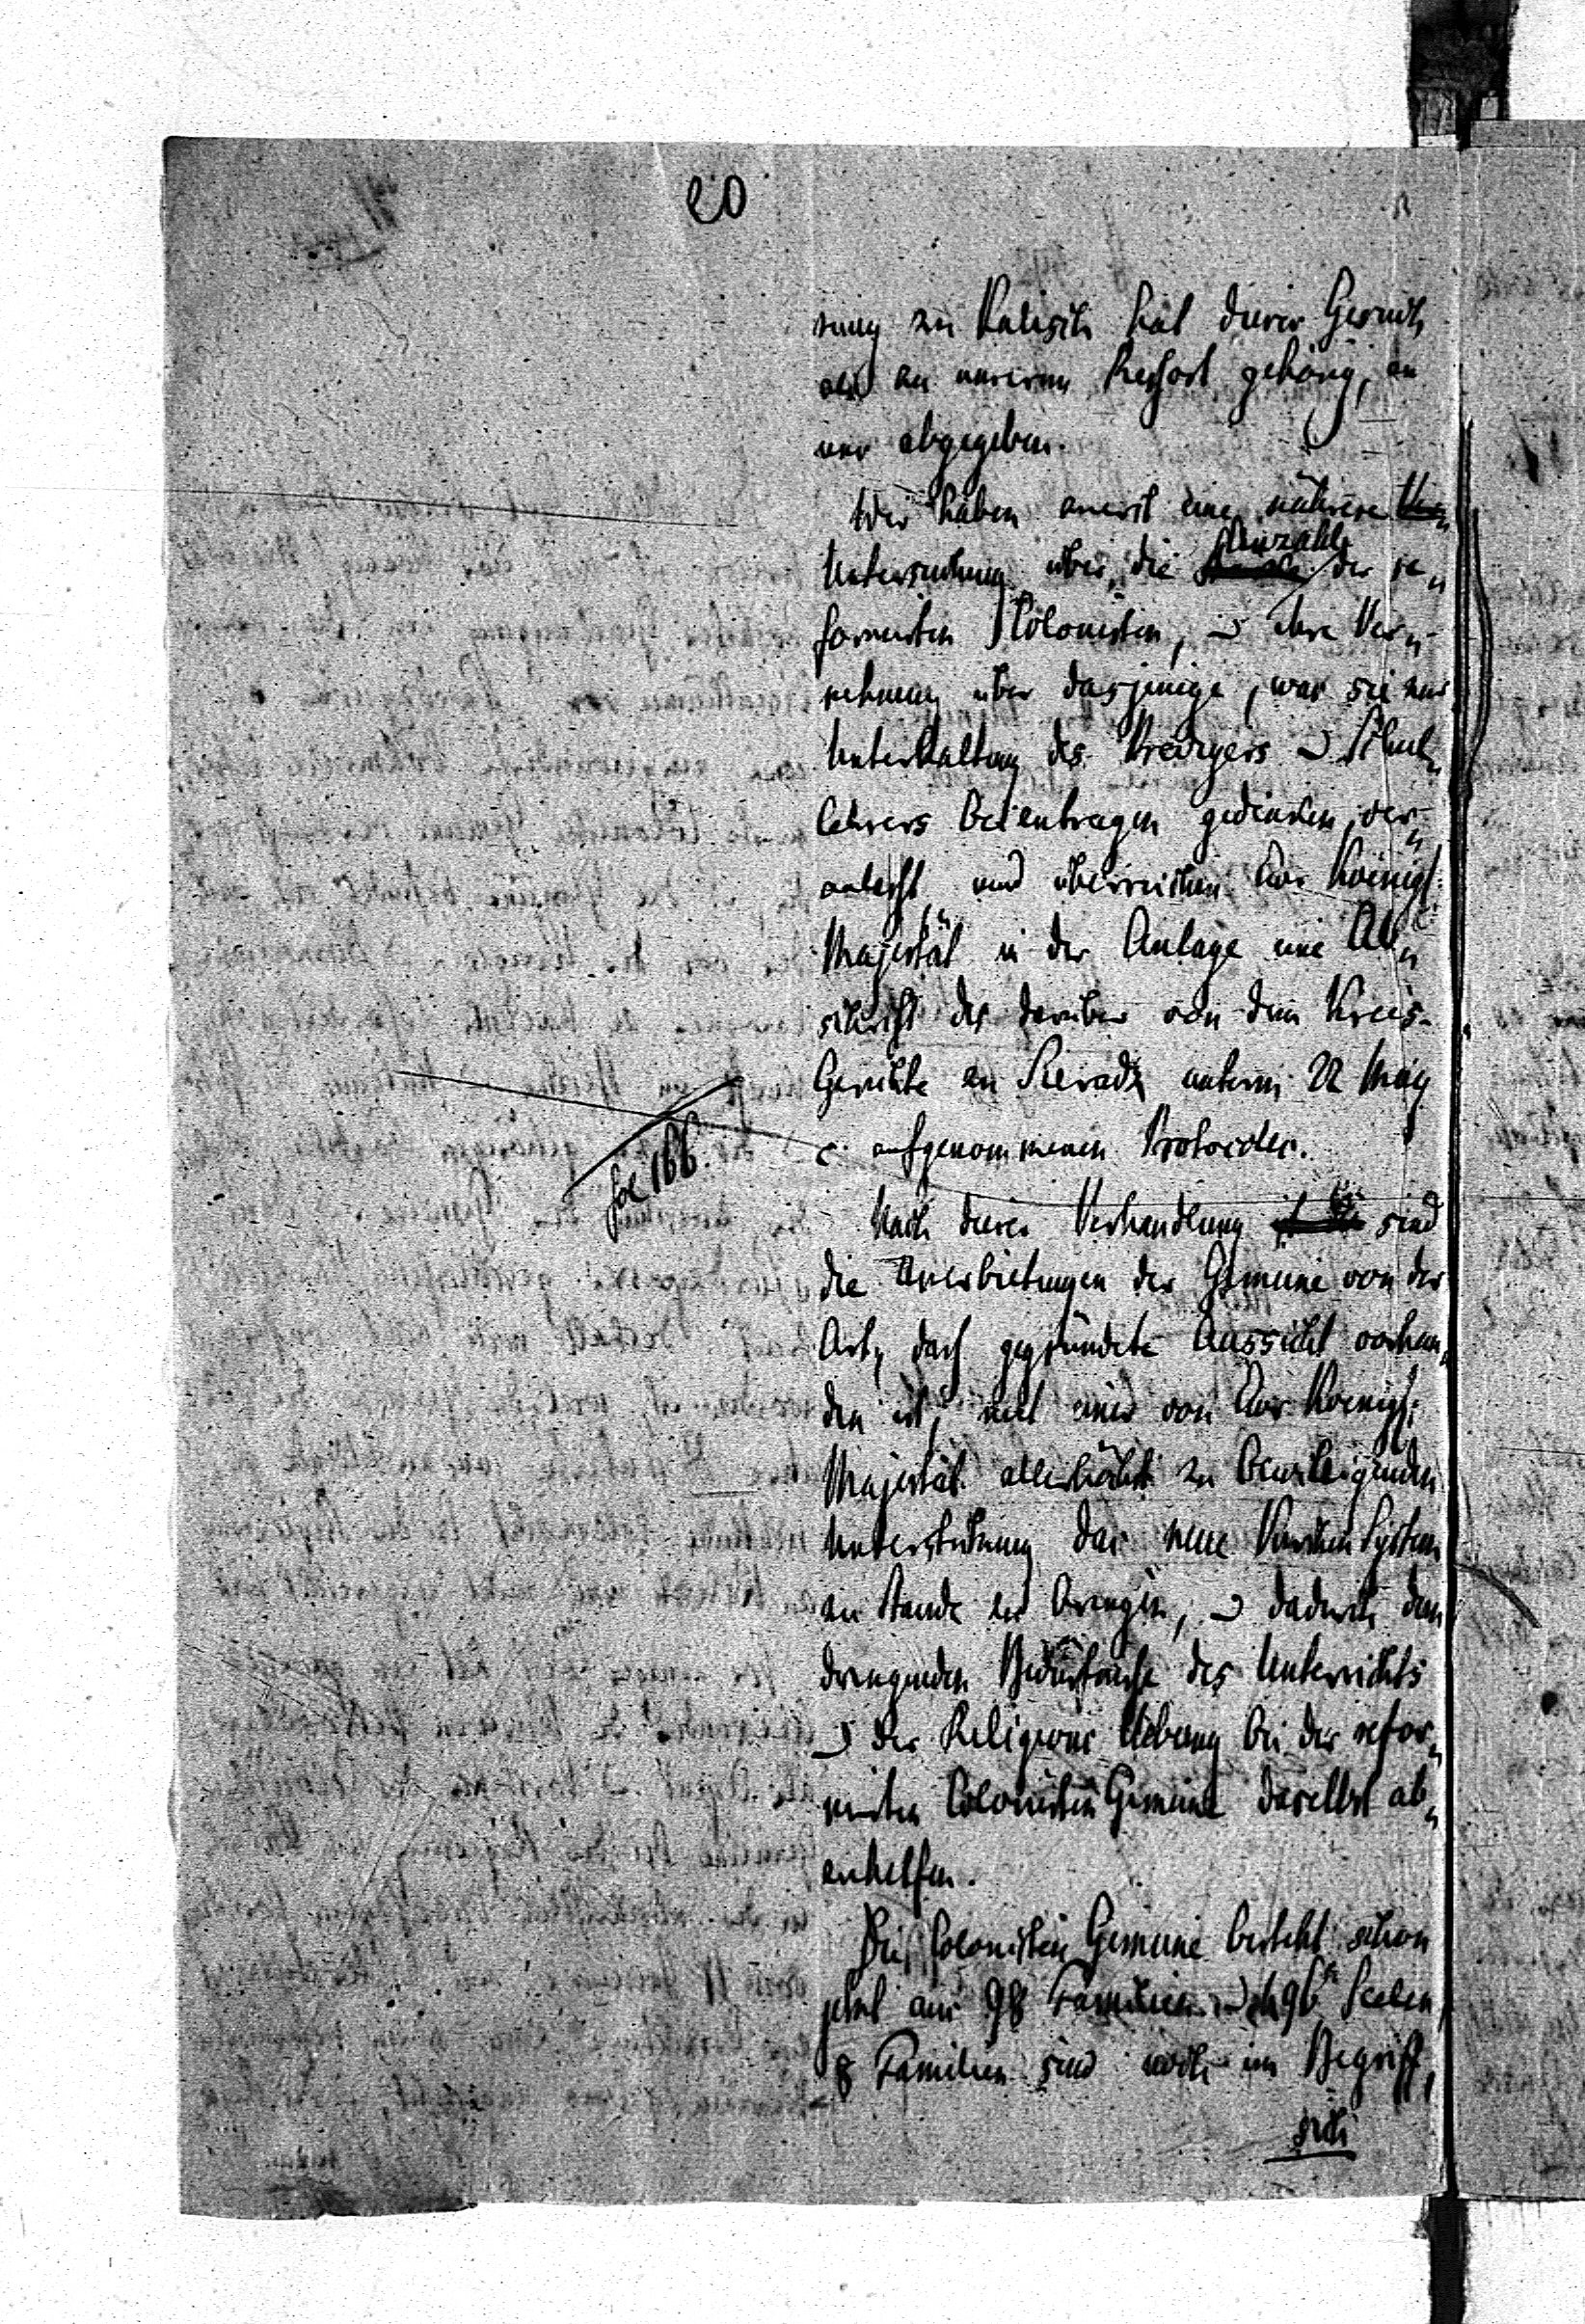 20
rung zu Kalisch hat dieses Gesuch,
als zu unserm Ressort gehörig, an
uns abgegeben.
Wir haben zuerst eine nähere
Untersuchung über die Anzahl der re„
formirten Kolonisten, u ihre Ver„
nehmung über dasjenige, was sie zur
Unterhaltung des Predigers u Schul„
lehrers beizutragen gedenken, ver„
anlasst, und überreichen Eur Königl.
Majestät in der Anlage eine Ab„
schrift des darüber von dem Kreis-
Gerichte zu Sieradz unterm 22 May
c. aufgenommenen Protocolls.
fol 166.
Nach dieser Verhandlung sind
die Anerbietungen der Gemeine von der
Art, dass gegründete Aussicht vorhan„
den ist, mit einer von Eur Koenigl.
Majestät allerhöchst zu bewilligenden
Unterstützung das neue Kirchen System
zu Stande zu bringen, u dadurch dem
dringenden Bedürfnisse des Unterrichts
u der Religions Uebung bei der refor„
mirten Colonisten Gemeine daselbst ab„
zuhelfen.
Die Colonisten Gemeine besteht schon
jetzt aus 98 Familien u 496 Seelen
8 Familien sind noch im Begriff,
sich